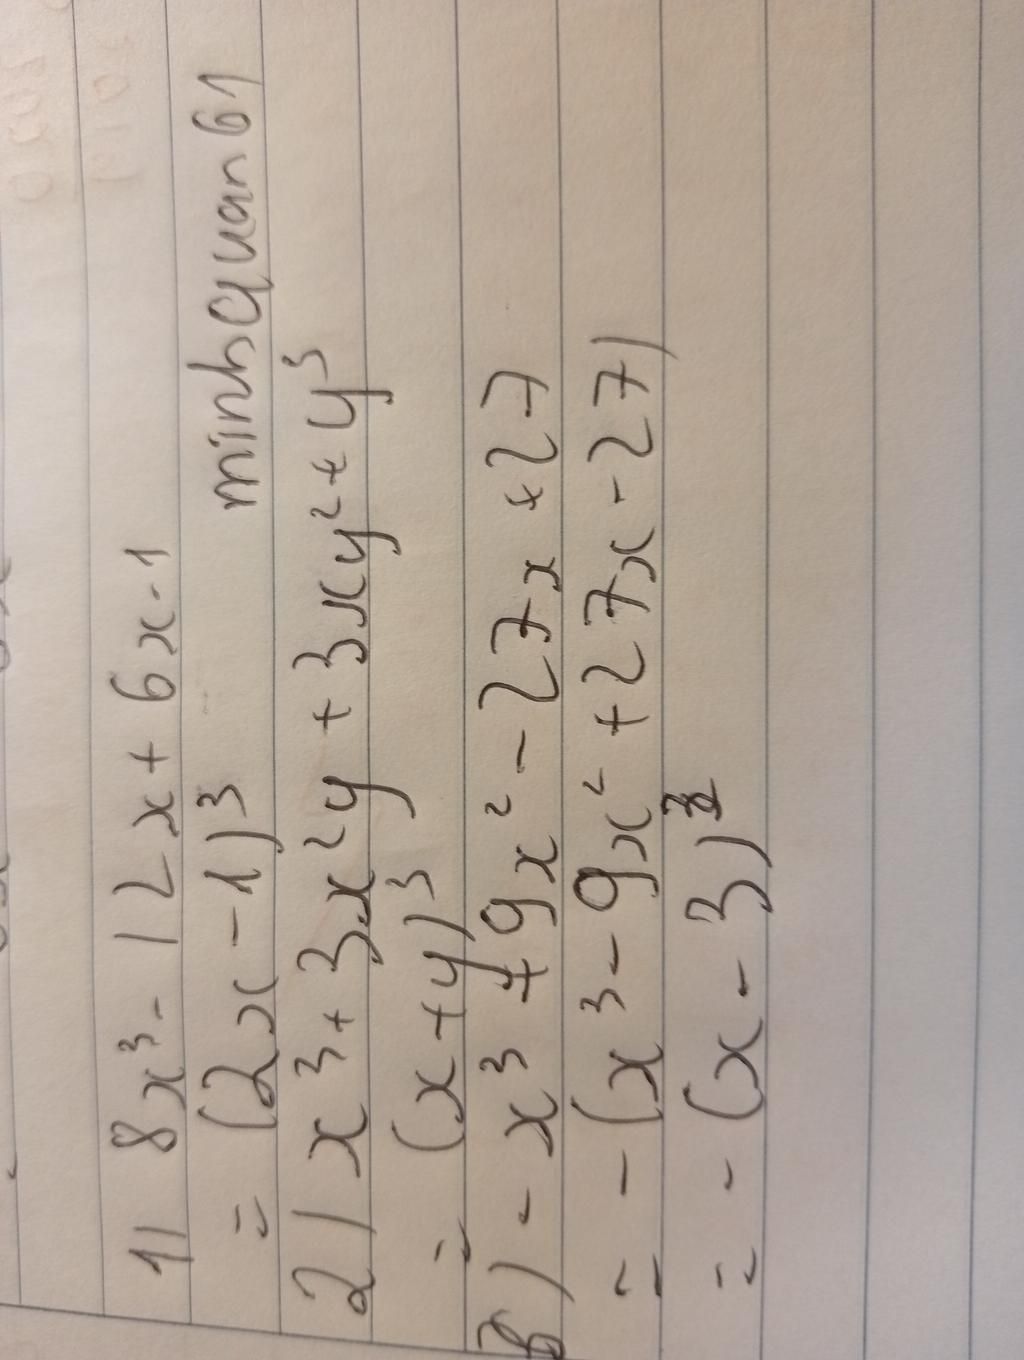 1) 8x³ - 12x + 6x - 1
= (2x - 1)³
minhquan61
2) x³ + 3x²y + 3xy² + y³
= (x + y)³
3) - x³ + 9x² - 27x + 27
= - (x³ - 9x² + 27x - 27)
= - (x - 3)³